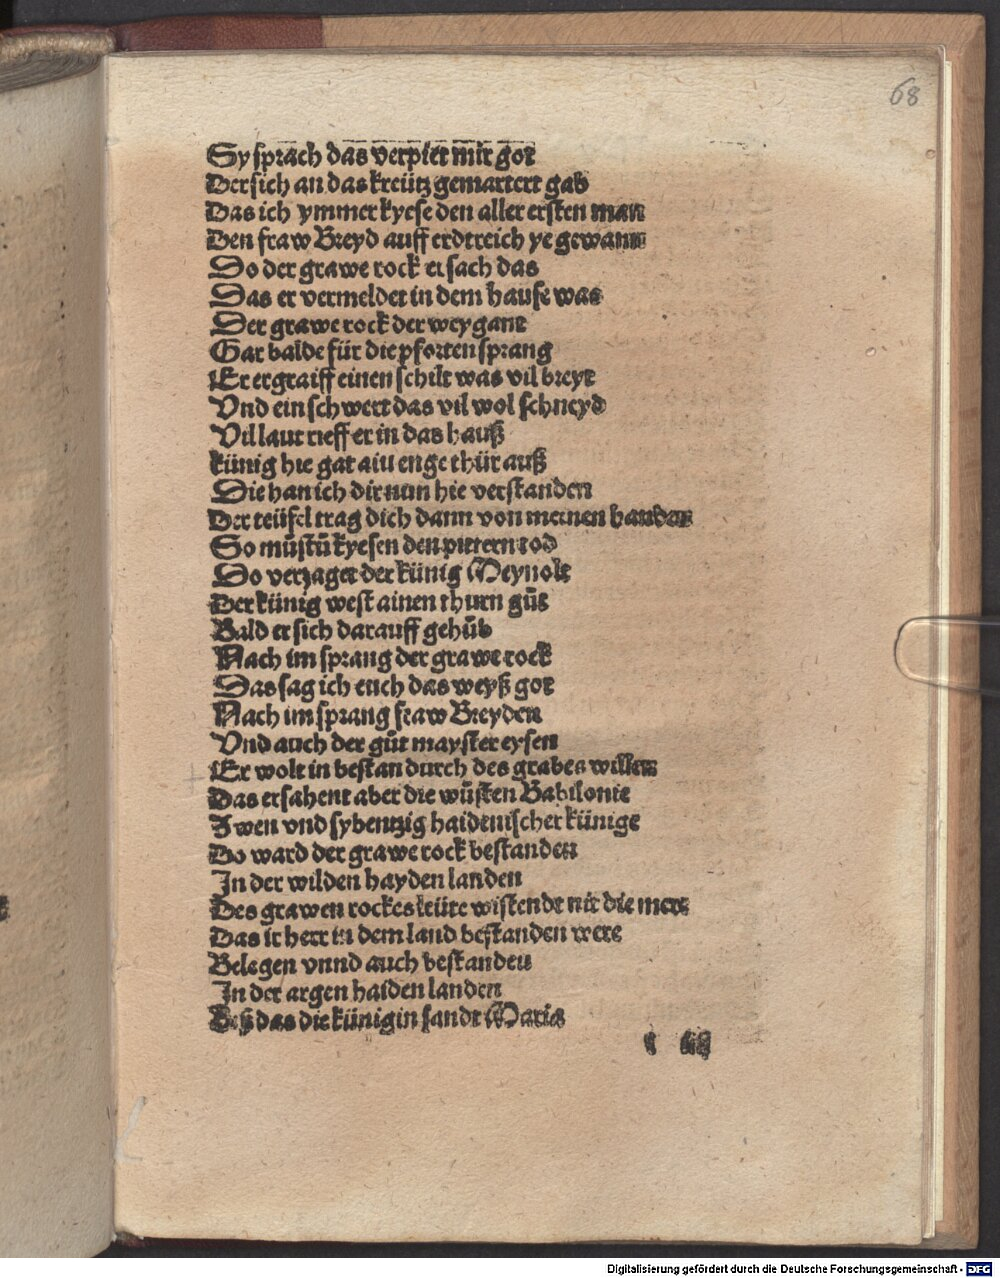 68
Sy sprach das verpiet mir got
Der sich an das kreütz gemartert gab
Das ich ymmer kyese den aller ersten man
Den fraw Breyd auff erdtreich ye gewann
Do der grawe rock ersach das
Das er vermeldet in dem hause was
Der grawe rock der weygant
Gar balde für die pforten sprang
Er ergraiff einen schilt was vil breyt
Vnd ein schwert das vil wol schneyd
Vil laut rieff er in das hauß
künig hie gat ain enge thür auß
Die han ich dir nun hie verstanden
Der teüfel trag dich dann von meinen handen
So můstu kyesen den pittern tod
Do verzaget der künig Meynolt
Der künig west ainen thurn gůt
Bald er sich darauff gehůb
Nach im sprang der grawe rock
Das sag ich euch das weyß got
Nach im sprang fraw Breyden
Vnd auch der gůt mayster eysen
Er wolt in bestan durch des grabes willen
Das ersahent aber die wůsten Babilonie
Zwen vnd sybentzig haidenischer künige
Do ward der grawe rock bestanden
In der wilden hayden landen
Des grawen rockes leüte wistendt nit die mere
Das ir herr in dem land bestanden were
Belegen vnnd auch bestanden
In der argen haiden landen
Biß das die künigin sandt Maria